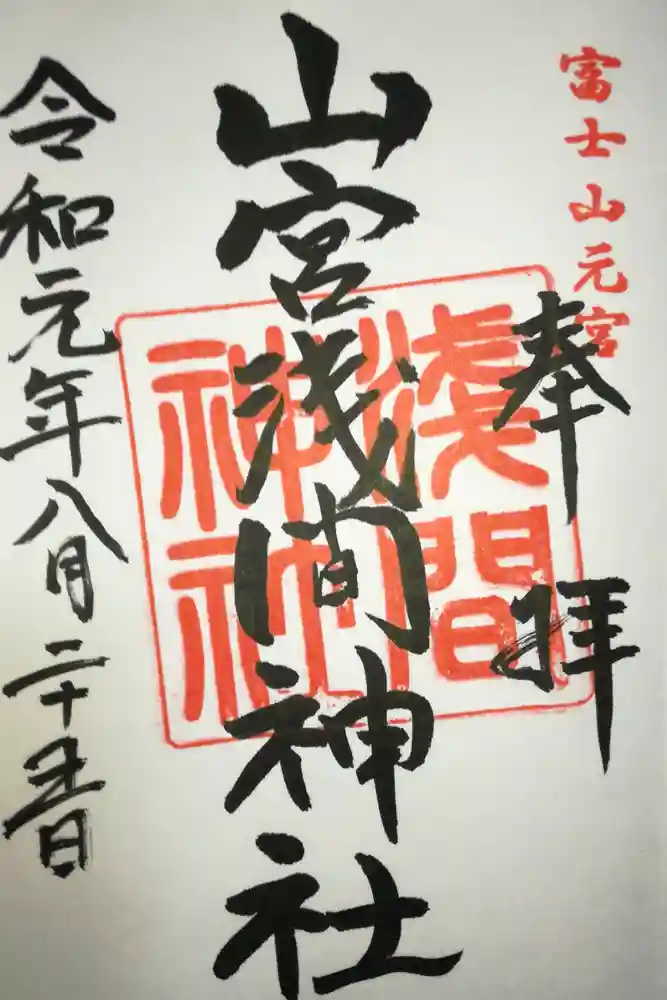 富士山元宮
奉拝
山宮浅間神社
淺間
神社
令和元年八月二十五日